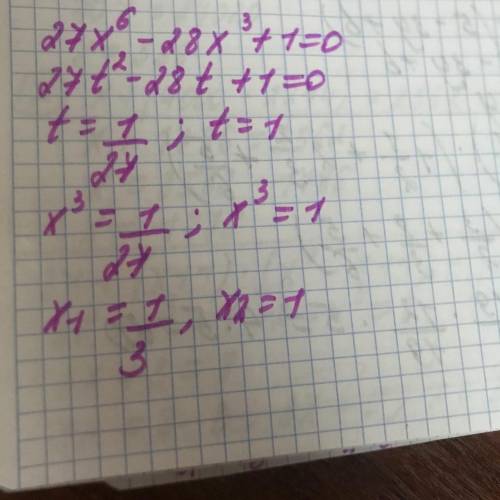 27x⁶ - 28x³ + 1 = 0
27t² - 28t + 1 = 0
t = 1/27 ; t = 1
x³ = 1/27 ; x³ = 1
x₁ = 1/3 , x₂ = 1